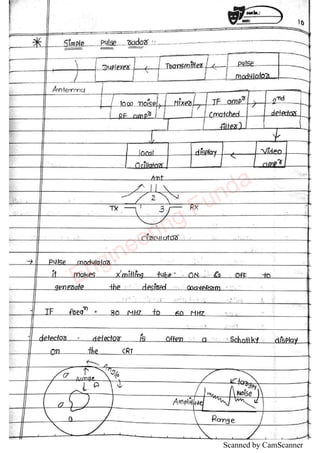 10
* Simple Pulse radar :-
Duplexer
Transmitter
Pulse
modulator
Antenna
low noise
RF ampr
Mixer
IF ampr
(matched
filter)
2nd
detector
local
Ocillator
display
Video
ampr
Ant
Tx 1 2 3 Rx
circulator
Engineering Funda
→ Pulse modulator
it makes x'mitting tube ON & OFF to
generate the desired waveform
IF freqn - 30 MHz to 60 MHz
detector - detector is often a Schottky display
on the CRT
Angle
range
target
Noise
Amplitude
Range
Scanned by CamScanner